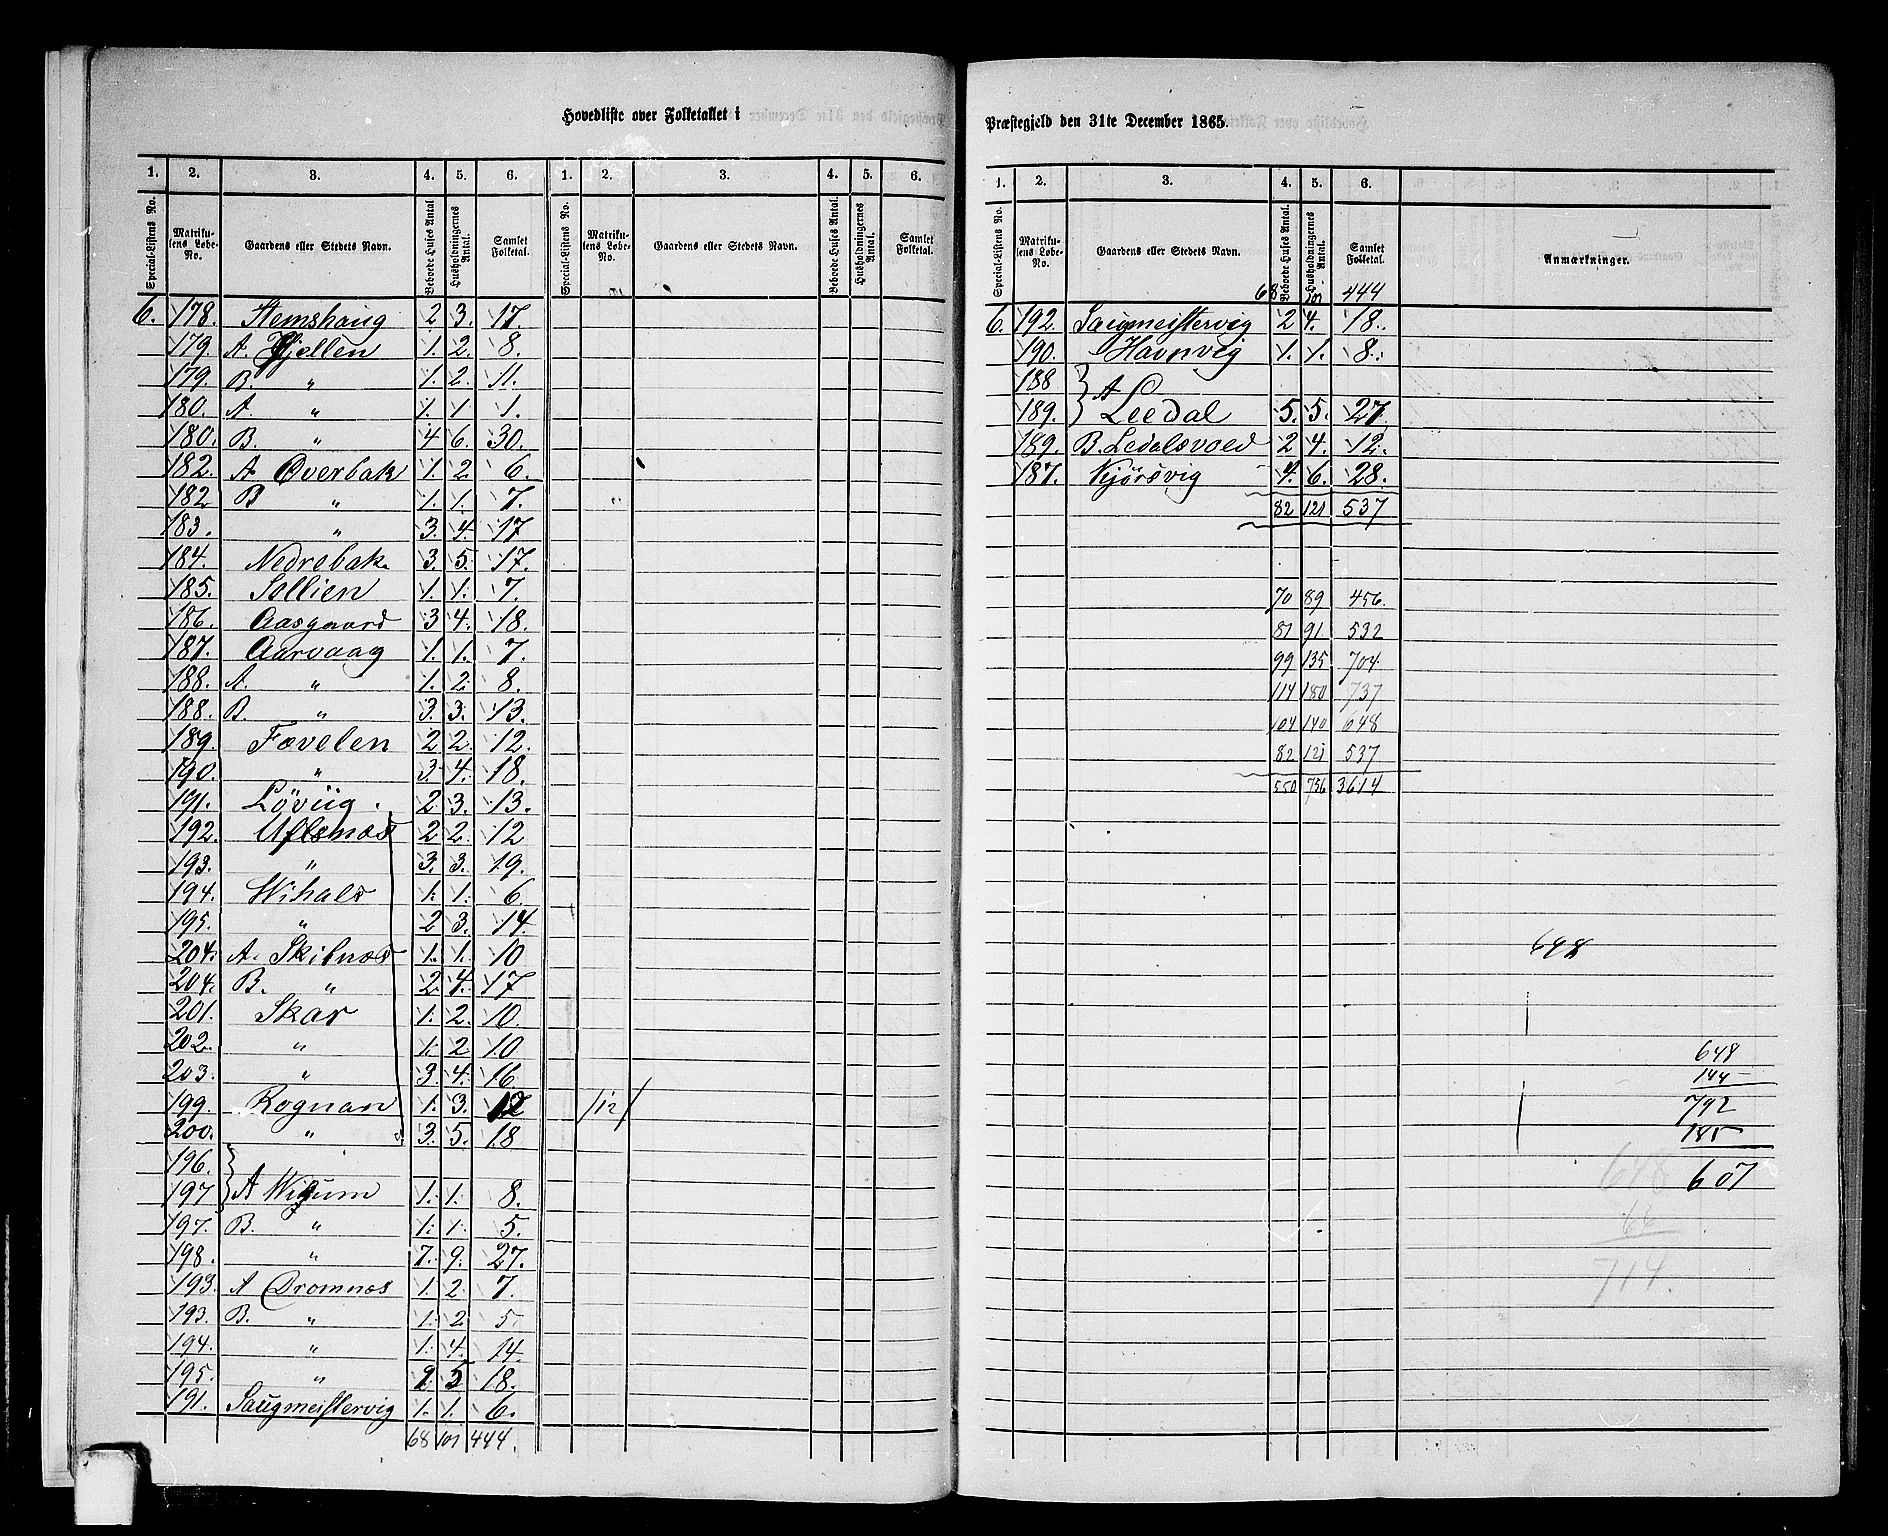 Hovedliste over Folketallet i
1. 2. 3. 4. 5. 6. 1. 2. 3. 4. 5. 6.
Special-Listens No. Matrikulens Løbe-No. Gaardens eller Stedets Navn. Beboede Huses Antal Husholdningernes Antal. Samlet Folketal. Special-Listens No. Matrikulens Løbe-No. Gaardens eller Stedets Navn. Beboede Huses Antal. Husholdningernes Antal. Samlet Folketal.
6. 178. Stemshaug 2 3. 17.
179. A. Fjellen 1. 2. 8.
179. B. " 1. 2. 11.
180. A. " 1. 1 1.
180. B. " 4 6. 30.
182. A Overbak 1. 2. 6.
182 B " 1. 1. 7.
183. " 3. 4. 17
184. Nedrebak. 3. 5. 17.
185. Sollien 1. 1. 7.
186. Aasgaard 3 4. 18.
187. Aarvaag 1. 1. 7.
188. A. " 1. 2. 8.
188. B. " 3. 3. 13.
189. Fævelen 2 2. 12.
190. " 3. 4. 18.
191. Løviig. 2. 3. 13.
192. Uflsnæs 2 2. 12
193. " 3. 3. 19.
194. Wihals 1. 1. 6.
195. " 2 3. 14.
204. A. Skibnæs 1. 1. 10
204. B. " 2. 4. 17
201. Skar 1. 2. 10.
202. " 1. 2 10
203. " 3. 4. 16.
199. Rognan 1. 3. 12 /12/
200. " 3. 5. 18
196. }
197 } A Wigum 1. 1. 8.
197. B. " 1. 1. 5.
198. " 7. 9. 27.
193. A Dromnæs 1. 2. 7.
193. B. " 1. 2 5.
194. " 1. 4. 14.
195. " 2 5 18.
191. Saugmeistervig 1. 1. 6.
68 101 444.
Præstegjeld den 31te December 1865.
1. 2. 3. 4. 5. 6.
Special-Listens No. Matrikulens Løbe-No. Gaardens eller Stedets Navn. Beboede Huses Antal. Husholdningernes Antal. Samlet Folketal. Anmærkninger.
68 101 444
6. 192. Saugmeistervig 2 4. 18.
190. Havnvig 1. 1. 8.
188 } A
189. } Leedal 5. 5. 27.
189. B. Ledalsvoed 2 4. 12.
187. Kjørsvig 4. 6. 28.
82 121 537
70 89 456.
81 91 532
99 135 704.
114 180 737
104 140 648
82 121 537
550 756 3614
648
648
144
792
185
648 607
66
714.